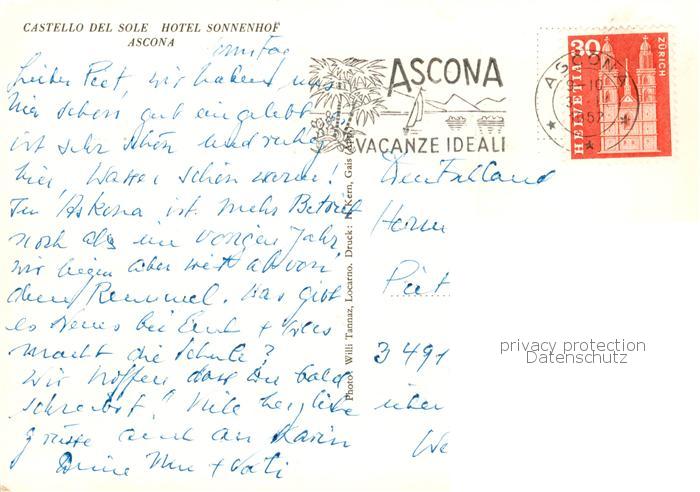 CASTELLO DEL SOLE HOTEL SONNENHOF
ASCONA
Lieber Piet, wir haben uns
hier schon gut eingelebt
ist sehr schön und ruhig
hier, Wasser schön warm!
In Askona ist mehr Betrieb
noch als im vorigen Jahr
wir liegen aber weit ab von
dem Rummel. Was gibt
es Neues bei Euch + was
macht die Schule?
Wir hoffen dass Du bald
schreibst! Viele herzliche
grüsse auch an Karin
Deine + Vati
Photo: Willi Tannaz, Locarno. Druck: Kern, Gais
ASCONA
VACANZE IDEALI
ASCONA
HELVETIA
30
ZÜRICH
Deutschland
Herrn
Piet
3491
über
We
privacy protection
Datenschutz